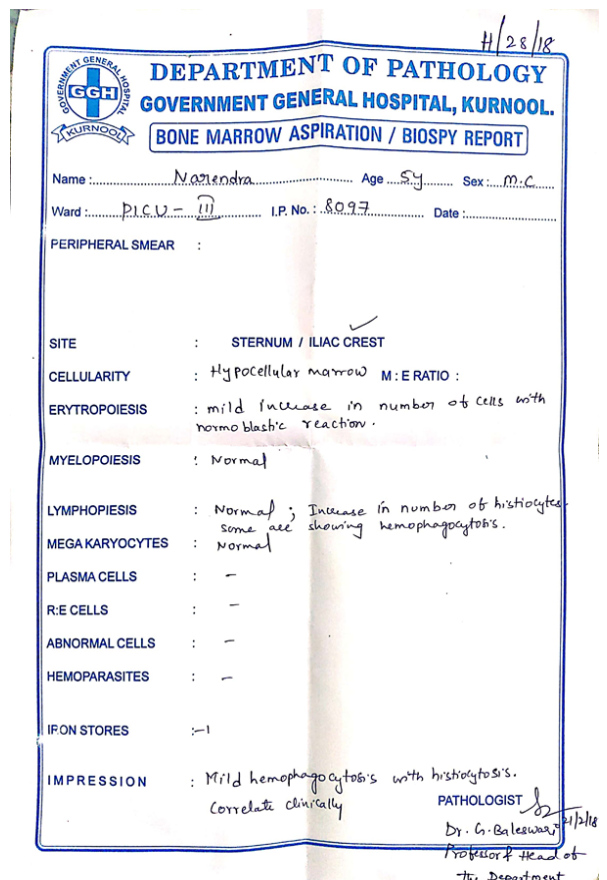 H/28/18
GOVERNMENT GENERAL HOSPITAL
GGH
KURNOOL
DEPARTMENT OF PATHOLOGY
GOVERNMENT GENERAL HOSPITAL, KURNOOL.
BONE MARROW ASPIRATION / BIOSPY REPORT
Name : Narendra Age 5y Sex : M.C
Ward : PICU - III I.P. No. : 8097 Date :
PERIPHERAL SMEAR :
SITE : STERNUM / ILIAC CREST
CELLULARITY : Hypocellular marrow M : E RATIO :
ERYTROPOIESIS : mild increase in number of cells with
normoblastic reaction.
MYELOPOIESIS : Normal
LYMPHOPIESIS : Normal ; Increase in number of histiocytes.
some are showing hemophagocytosis.
MEGA KARYOCYTES : Normal
PLASMA CELLS : -
R:E CELLS : -
ABNORMAL CELLS : -
HEMOPARASITES : -
IRON STORES :-1
IMPRESSION : Mild hemophagocytosis with histiocytosis.
Correlate clinically
PATHOLOGIST
21/2/18
Dr. G. Baleswari
Professor & Head of
the Department